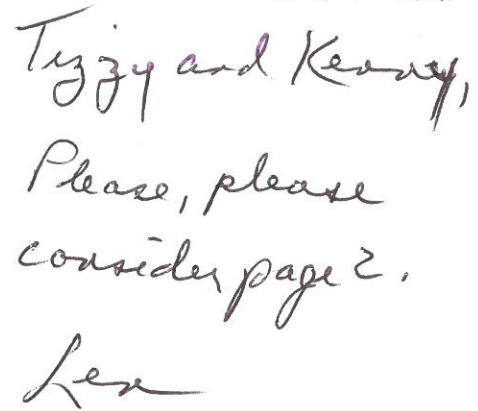 Tizzy and Kenny,
Please, please
consider page 2.
Lex